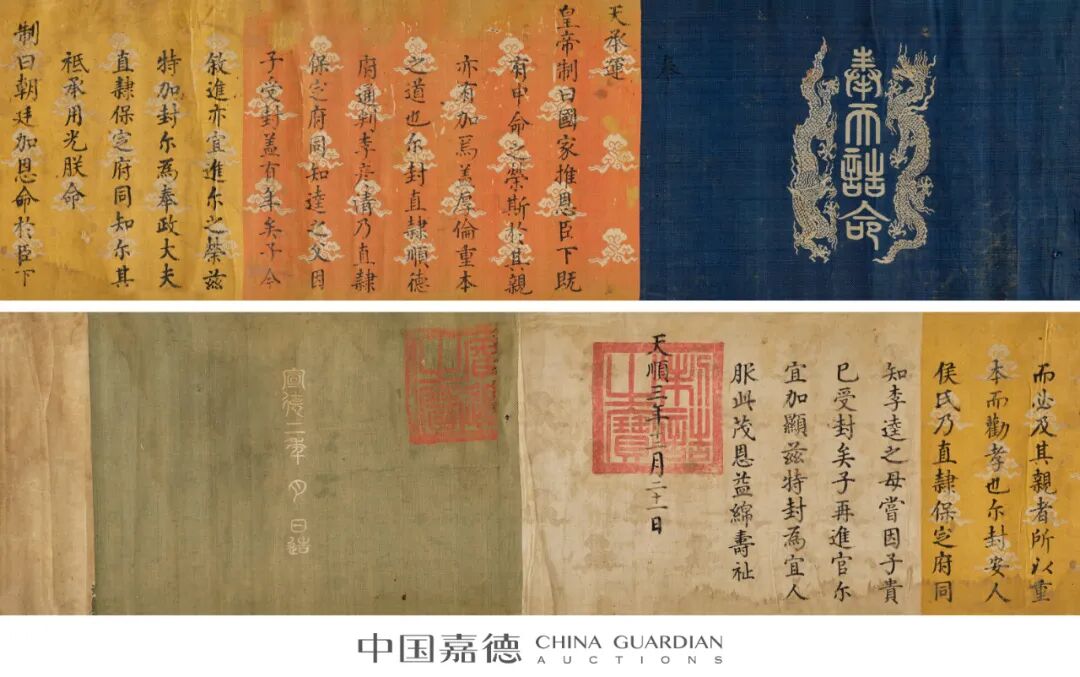 奉天誥命
奉
天承運
皇帝制曰國家推恩臣下既
有申命之榮斯於其親
亦有加焉盖厚倫重本
之道也尔封直隸順德
府通判李彦清乃直隸
保定府同知逵之父因
子受封盖有年矣子今
敘進亦宜進尔之榮兹
特加封尔為奉政大夫
直隸保定府同知尔其
祗承用光朕命
制曰朝廷加恩命於臣下
而必及其親者所以重
本而勸孝也尔封安人
侯氏乃直隸保定府同
知李逵之母嘗因子貴
已受封矣子再進官尔
宜加顯兹特封為宜人
服此茂恩益綿壽祉
天順三年十二月二十一日
制誥之寶
宣德二年 月 日造
中国嘉德 CHINA GUARDIAN
AUCTIONS